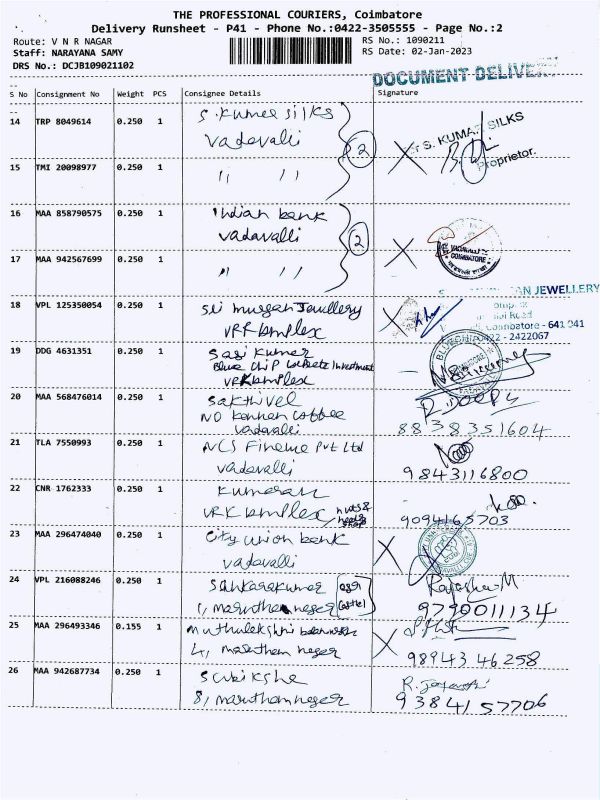 THE PROFESSIONAL COURIERS, Coimbatore
Delivery Runsheet - P41 - Phone No.:0422-3505555 - Page No.:2
Route: V N R NAGAR RS No.: 1090211
Staff: NARAYANA SAMY RS Date: 02-Jan-2023
DRS No.: DCJB109021102
DOCUMENT DELIVE
S No Consignment No Weight PCS Consignee Details Signature
14 TRP 8049614 0.250 1 S. Kumar silks
Vadavalli
2
S. KUMAR SILKS
Proprietor.
15 TMI 20098977 0.250 1 " "
16 MAA 858790575 0.250 1 Indian bank
vadavalli
2
VADAVALLI
COIMBATORE
17 MAA 942567699 0.250 1 " "
18 VPL 125350054 0.250 1 Sri murgan Jewllery
VRR Komplex
AN JEWELLERY
Road
Coimbatore - 641 041
0422 - 2422067
19 DDG 4631351 0.250 1 Sasi Kumar
Blue Chip Investment
VRR Komplex
BLUECHIP
20 MAA 568476014 0.250 1 Sakthivel
NO Kannan coffee
vadavalli
8838351604
21 TLA 7550993 0.250 1 NCS Finance Pvt Ltd
vadavalli
9843116800
22 CNR 1762333 0.250 1 Kumaran
VRR Komplex
9094165703
23 MAA 296474040 0.250 1 City union bank
vadavalli
24 VPL 216088246 0.250 1 Sankarakumar
1, marutham nagar
Rajeshwari M
9790011134
25 MAA 296493346 0.155 1 Muthulekshmi
4, marutham nagar
98943 46258
26 MAA 942687734 0.250 1 Subiksha
8, marutham nagar
R. Jayanthi
9384157706